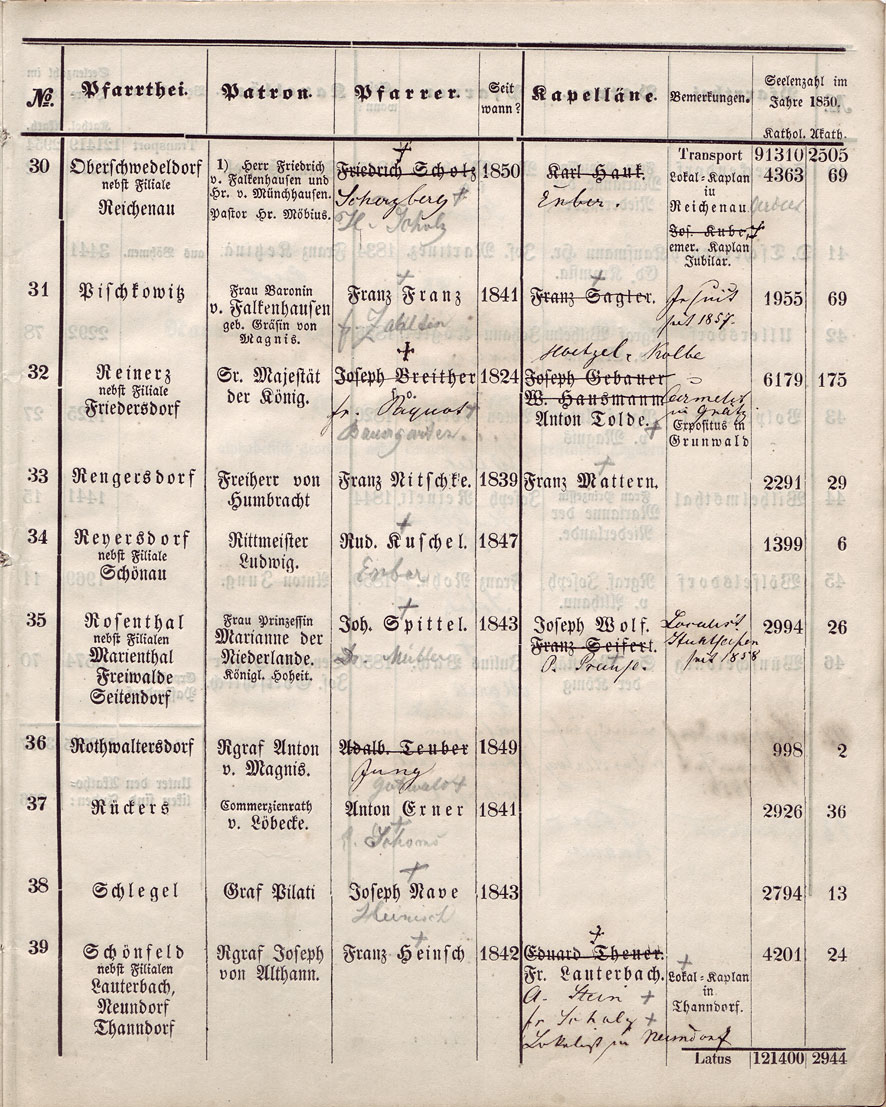 №. Pfarrthei. Patron. Pfarrer. Seit wann? Kapelläne. Bemerkungen. Seelenzahl im Jahre 1850. Kathol. Akath.
Transport 91310 2505
30 Oberschwedeldorf 1) Herr Friedrich Friedrich Scholz 1850 Karl Hauk. Lokal-Kaplan 4363 69
nebst Filiale v. Falkenhausen und in
Reichenau Hr. v. Münchhausen. Scharzberg Enber. Reichenau
Pastor Hr. Möbius. H. Scholz Jos. Kube,
emer. Kaplan
Jubilar.
31 Pischkowitz Frau Baronin Franz Franz 1841 Franz Sagler. Jesuit 1955 69
v. Falkenhausen seit 1857.
geb. Gräfin von
Magnis.
Hoetzel Kolbe
32 Reinerz Sr. Majestät Joseph Breither 1824 Joseph Gebauer 6179 175
nebst Filiale der König. W. Hausmann
Friedersdorf fr. Anton Tolde. Expositus in
Baumgarten Grunwald
33 Rengersdorf Freiherr von Franz Nitschke. 1839 Franz Mattern. 2291 29
Humbracht
34 Reyersdorf Rittmeister Rud. Kuschel. 1847 1399 6
nebst Filiale Ludwig.
Schönau Enber
35 Rosenthal Frau Prinzessin Joh. Spittel. 1843 Joseph Wolf. 2994 26
nebst Filialen Marianne der Franz Seifert.
Marienthal Niederlande. Dr. Müller P. seit 1858
Freiwalde Königl. Hoheit.
Seitendorf
36 Rothwaltersdorf Rgraf Anton Adalb. Teuber 1849 998 2
v. Magnis. Jung
37 Rückers Commerzienrath Anton Erner 1841 2926 36
v. Löbecke.
38 Schlegel Graf Pilati Joseph Nave 1843 2794 13
Heinisch
39 Schönfeld Rgraf Joseph Franz Heinsch 1842 Eduard Theuer. 4201 24
nebst Filialen von Althann. Fr. Lauterbach. Lokal-Kaplan
Lauterbach, A. Stein in
Neundorf fr. Scholz Thanndorf.
Thanndorf Lokalist in Neundorf
Latus 121400 2944